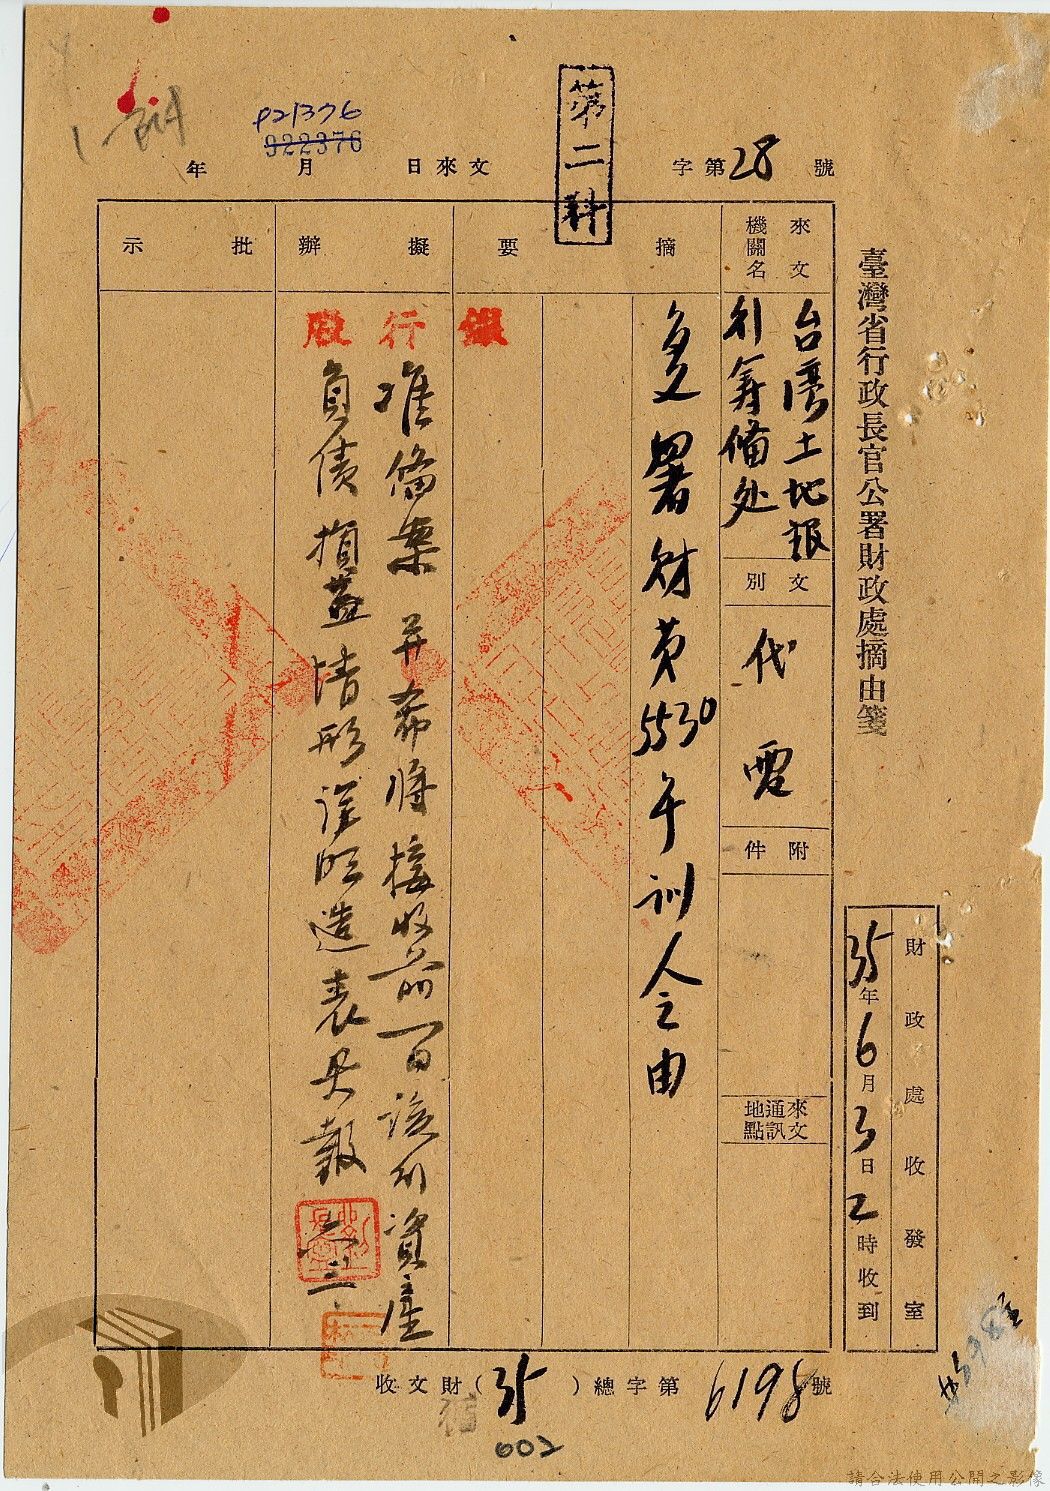 臺灣省行政長官公署財政處摘由箋
財政處收發室
35年6月3日2時收到
字第28號
年 月 日來文
922376
第二科
來文機關名
台灣土地銀
行籌備处
文別
代電
附件
來文通訊地點
摘要
署財
5530
訓令由
擬辦
銀行股
准備案并希將接收前一日該行資產
負債損益情形詳明造表呈報
六三
批示
收文財(35)總字第6198號
602
請合法使用公開之影像